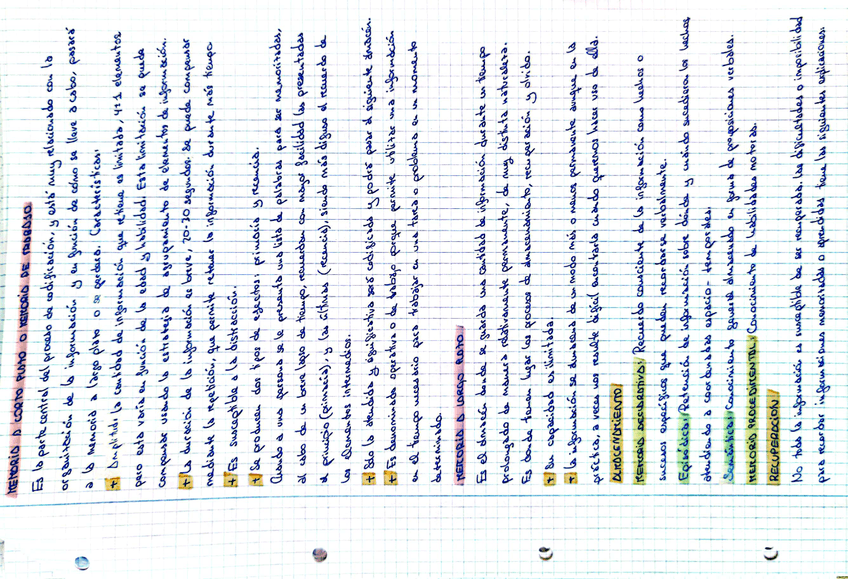 MEMORIA A CORTO PLAZO O MEMORIA DE TRABAJO
Es la parte central del proceso de codificación, y está muy relacionado con la
organización de la información y en función de cómo se lleve a cabo, pasará
a la memoria a largo plazo o se perderá. Características:
+ Amplitud: la cantidad de información que retiene es limitada, 4±1 elementos
pero esta varía en función de la edad y habilidad. Esta limitación se puede
compensar usando la estrategia de agrupamiento de elementos de información.
+ La duración de la información es breve, 20-30 segundos. Se puede compensar
mediante la repetición, que permite retener la información durante más tiempo
+ Es susceptible a la distracción.
+ Se producen dos tipos de efectos: primacía y recencia.
Cuando a una persona se le presenta una lista de palabras para ser memorizadas,
al cabo de un breve lapso de tiempo, recuerdan con mayor facilidad las presentadas
al principio (primacía), y las últimas (recencia), siendo más difuso el recuerdo de
los elementos intermedios.
+ Solo lo atendido y significativo será codificado y podrá pasar al siguiente almacén.
+ Es denominada operativa o de trabajo porque permite utilizar una información
en el tiempo necesario para trabajar en una tarea o problema en un momento
determinado.
MEMORIA A LARGO PLAZO
Es el almacén donde se guarda una cantidad de información durante un tiempo
prolongado de manera relativamente permanente, de muy distinta naturaleza.
Es donde tienen lugar los procesos de almacenamiento, recuperación y olvido.
+ Su capacidad es ilimitada.
+ La información se almacena de un modo más o menos permanente aunque en la
práctica, a veces nos resulte difícil encontrarla cuando queremos hacer uso de ella.
ALMACENAMIENTO
MEMORIA DECLARATIVA: Recuerdo consciente de la información como hechos o
sucesos específicos que pueden recordarse verbalmente.
Episódica: Retención de información sobre dónde y cuándo sucedieron los hechos
atendiendo a coordenadas espacio-temporales.
Semántica: Conocimiento general almacenado en forma de proposiciones verbales.
MEMORIA PROCEDIMENTAL: Conocimiento de habilidades motoras.
RECUPERACIÓN
No toda la información es susceptible de ser recuperada, las dificultades o imposibilidad
para recordar informaciones memorizadas o aprendidas tiene las siguientes explicaciones: